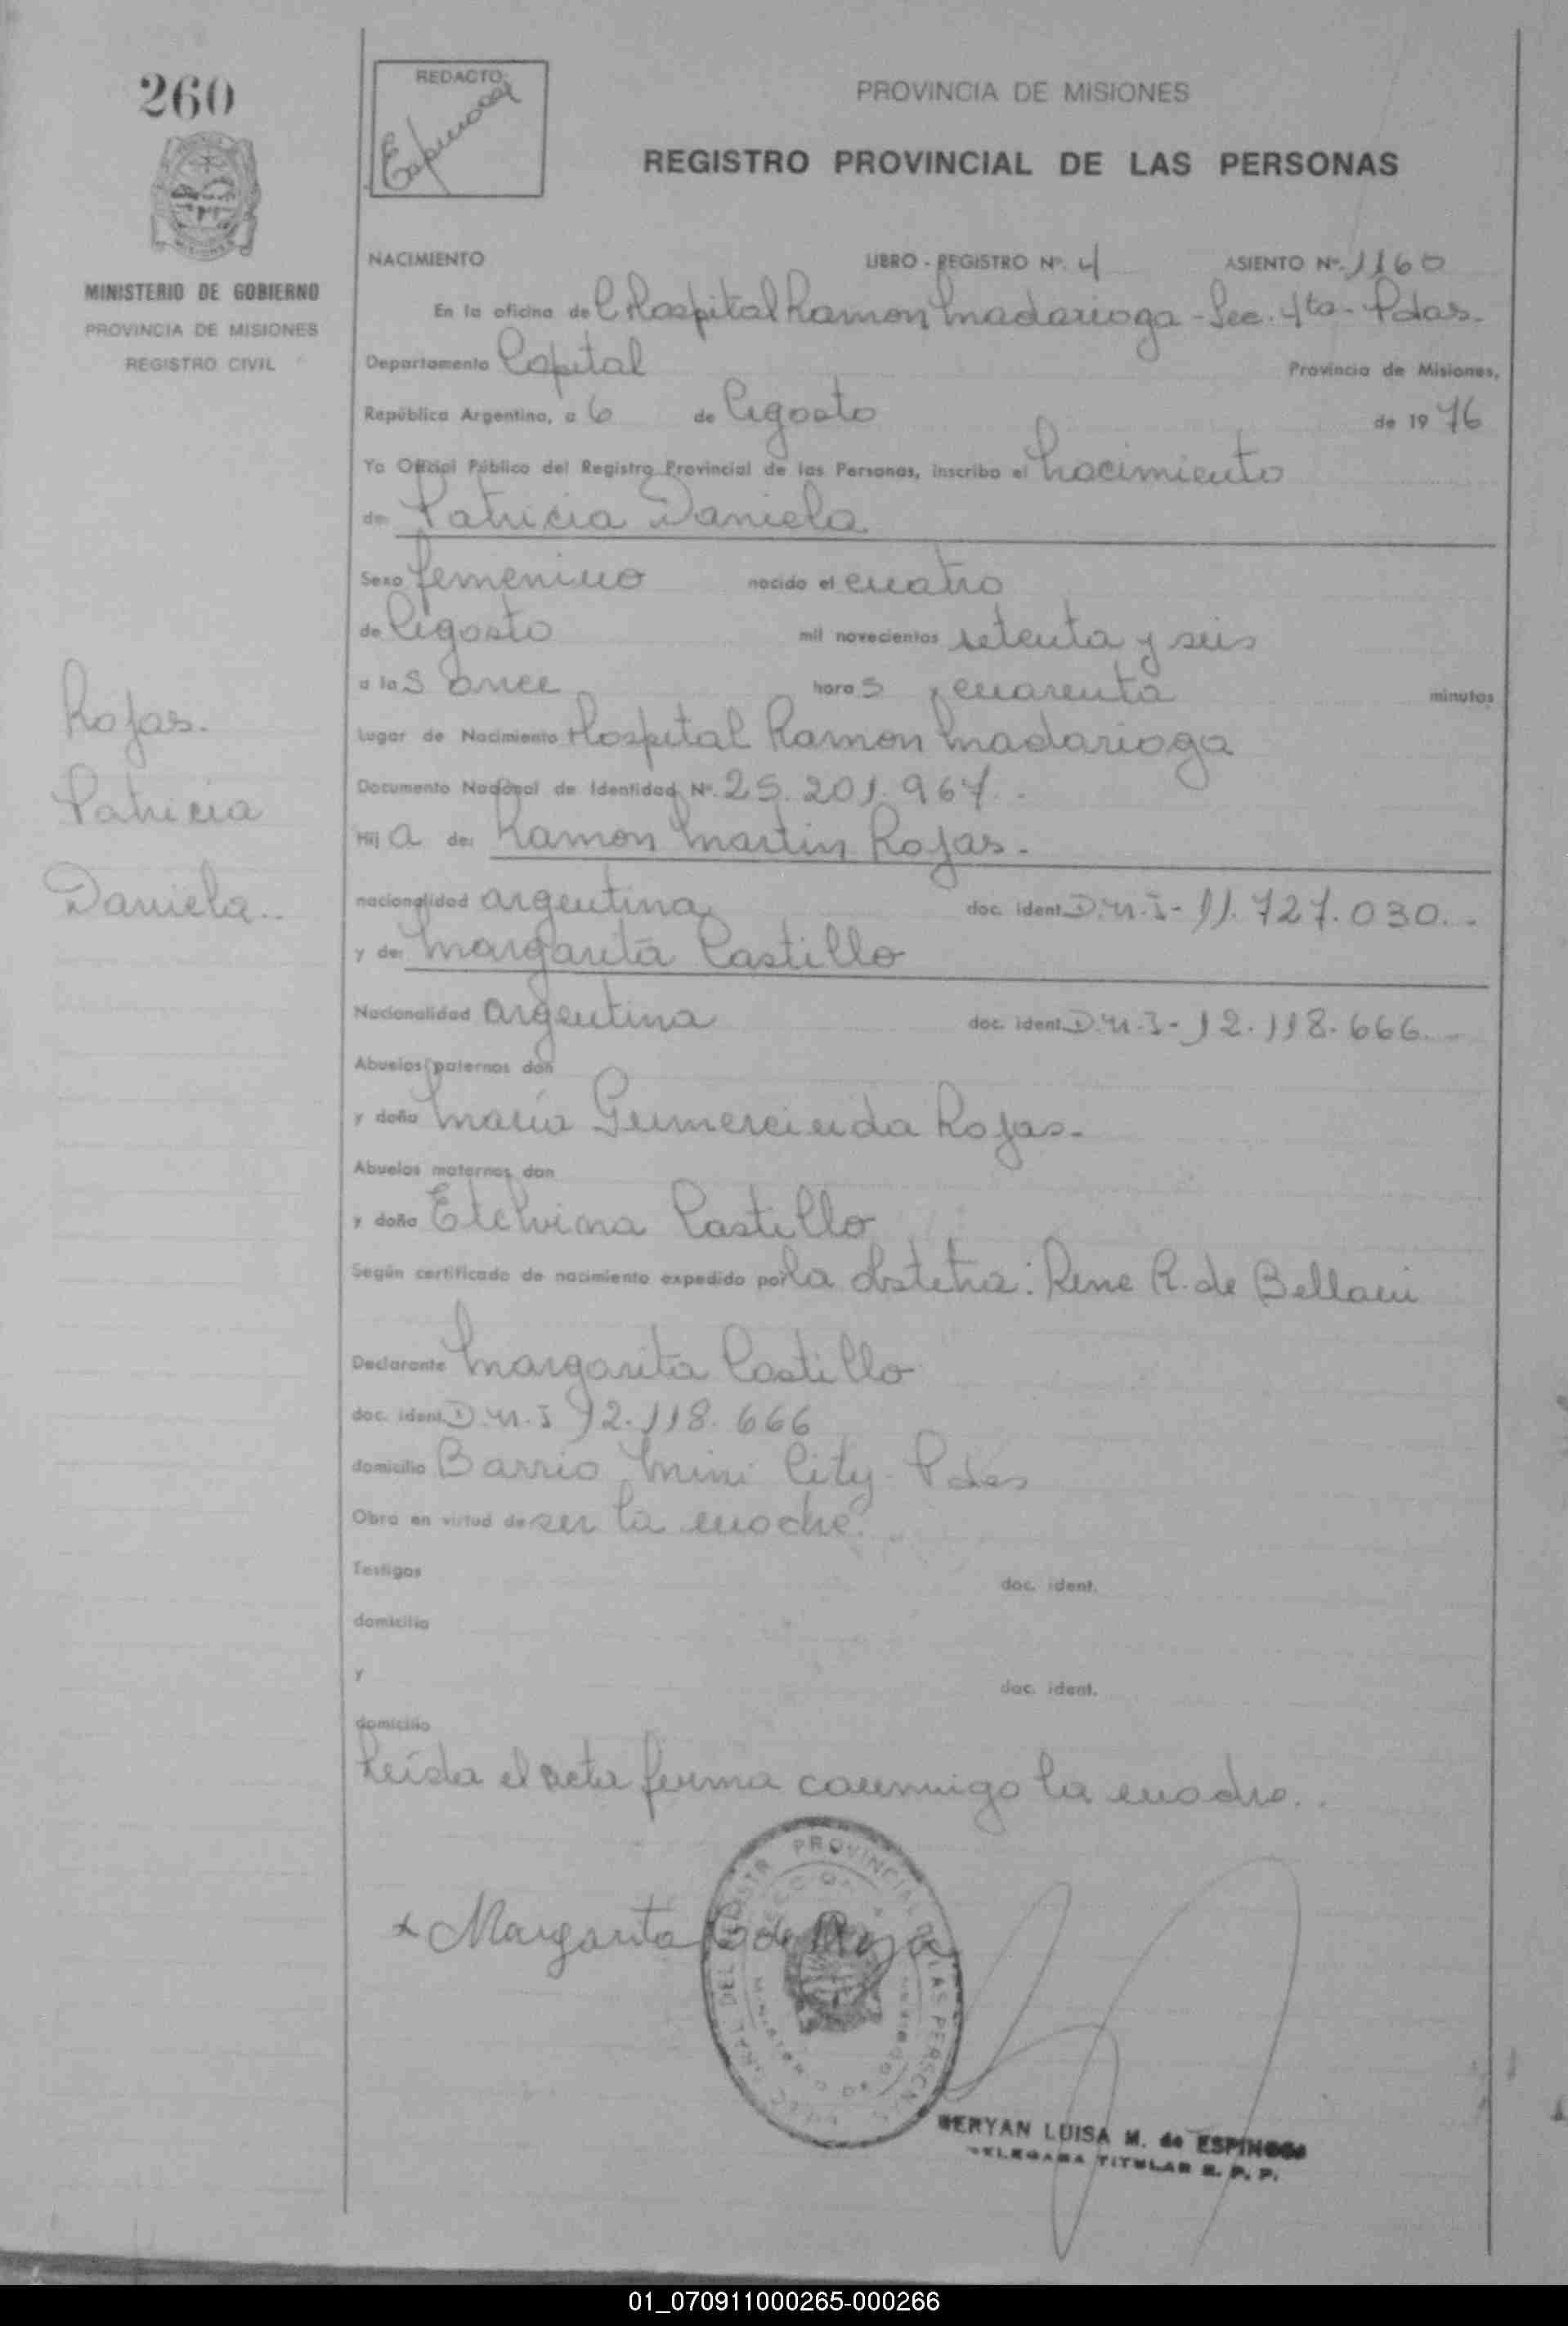 260
REDACTO:
Espinosa
PROVINCIA DE MISIONES
REGISTRO PROVINCIAL DE LAS PERSONAS
MINISTERIO DE GOBIERNO
PROVINCIA DE MISIONES
REGISTRO CIVIL
NACIMIENTO LIBRO - REGISTRO Nº. 4 ASIENTO Nº. 1160
En la oficina de Hospital Ramon Madariaga - Sec. 4ta - Pdas.
Departamento Capital Provincia de Misiones,
República Argentina, a 6 de Agosto de 1976
Yo Oficial Público del Registro Provincial de las Personas, inscribo el Nacimiento
de: Patricia Daniela
Sexo femenino nacido el cuatro
de Agosto mil novecientos setenta y seis
a las once horas, cuarenta minutos
Lugar de Nacimiento Hospital Ramon Madariaga
Documento Nacional de Identidad Nº. 25.201.967.
Hija de: Ramon Martin Rojas.
nacionalidad argentina doc. ident. D.N.I- 11.727.030.
y de: Margarita Castillo
Nacionalidad argentina doc. ident. D.N.I- 12.118.666.
Abuelos paternos don
y doña María Gumercinda Rojas.
Abuelos maternos don
y doña Etelvina Castillo
Según certificado de nacimiento expedido por la obstetra: Rene R. de Bellani
Declarante Margarita Castillo
doc. ident. D.N.I 12.118.666
domicilio Barrio Mini City - Pdas
Obra en virtud de ser la madre.
Testigos doc. ident.
domicilio
y doc. ident.
domicilio
Leída el acta firma conmigo la madre..
Rojas.
Patricia
Daniela..
x Margarita C de Rojas
PROVINCIAL DE LAS PERSONAS
MERYAN LUISA M. de ESPINOSA
DELEGADA TITULAR R. P. P.
01_070911000265-000266